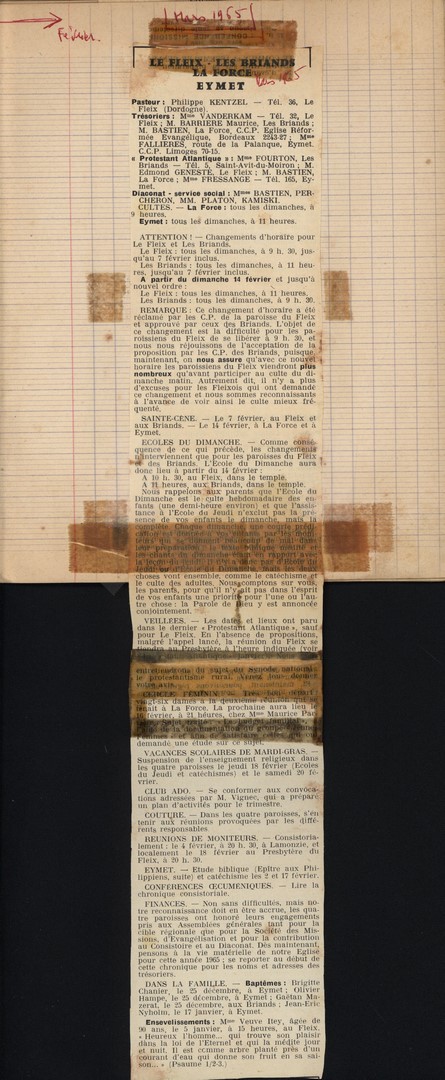 [Mars 1965]
Février.
LE FLEIX - LES BRIANDS
LA FORCE
Mars 1965
EYMET
Pasteur : Philippe KENTZEL — Tél. 36, Le
Fleix (Dordogne).
Trésoriers : Mme VANDERKAM — Tél. 32, Le
Fleix ; M. BARRIERE Maurice, Les Briands ;
M. BASTIEN, La Force, C.C.P. Eglise Réfor-
mée Evangélique, Bordeaux 2243-87 ; Mme
FALLIERES, route de la Palanque, Eymet.
C.C.P. Limoges 70-15.
« Protestant Atlantique » : Mme FOURTON, Les
Briands — Tél. 5, Saint-Avit-du-Moiron ; M.
Edmond GENESTE, Le Fleix ; M. BASTIEN,
La Force ; Mme FRESSANGE — Tél. 165, Ey-
met.
Diaconat - service social : Mmes BASTIEN, PER-
CHERON, MM. PLATON, KAMISKI.
CULTES. — La Force : tous les dimanches, à
9 heures.
Eymet : tous les dimanches, à 11 heures.
ATTENTION ! — Changements d'horaire pour
Le Fleix et Les Briands.
Le Fleix : tous les dimanches, à 9 h. 30, jus-
qu'au 7 février inclus.
Les Briands : tous les dimanches, à 11 heu-
res, jusqu'au 7 février inclus.
A partir du dimanche 14 février et jusqu'à
nouvel ordre :
Le Fleix : tous les dimanches, à 11 heures.
Les Briands : tous les dimanches, à 9 h. 30.
REMARQUE : Ce changement d'horaire a été
réclamé par les C.P. de la paroisse du Fleix
et approuvé par ceux des Briands. L'objet de
ce changement est la difficulté pour les pa-
roissiens du Fleix de se libérer à 9 h. 30, et
nous nous réjouissons de l'acceptation de la
proposition par les C.P. des Briands, puisque,
maintenant, on nous assure qu'avec ce nouvel
horaire les paroissiens du Fleix viendront plus
nombreux qu'avant participer au culte du di-
manche matin. Autrement dit, il n'y a plus
d'excuses pour les Fleixois qui ont demandé
ce changement et nous sommes reconnaissants
à l'avance de voir ainsi le culte mieux fré-
quenté.
SAINTE-CENE. — Le 7 février, au Fleix et
aux Briands. — Le 14 février, à La Force et à
Eymet.
ECOLES DU DIMANCHE. — Comme consé-
quence de ce qui précède, les changements
n'interviennent que pour les paroisses du Fleix
et des Briands. L'Ecole du Dimanche aura
donc lieu à partir du 14 février :
A 10 h. 30, au Fleix, dans le temple.
A 11 heures, aux Briands, dans le temple.
Nous rappelons aux parents que l'Ecole du
Dimanche est le culte hebdomadaire des en-
fants (une demi-heure environ) et que l'assis-
tance à l'Ecole du Jeudi n'exclut pas la pré-
sence de vos enfants le dimanche, mais la
complète. Chaque dimanche, une courte prédi-
choses vont ensemble, comme le catéchisme et
le culte des adultes. Nous comptons sur vous,
les parents, pour qu'il n'y ait pas dans l'esprit
de vos enfants une priorité pour l'une ou l'au-
tre chose : la Parole de Dieu y est annoncée
conjointement.
VEILLEES. — Les dates et lieux ont paru
dans le dernier « Protestant Atlantique », sauf
pour Le Fleix. En l'absence de propositions,
malgré l'appel lancé, la réunion du Fleix se
tiendra au Presbytère à l'heure indiquée (voir
entretiendrons du sujet du Synode national :
le protestantisme rural. Venez donner
votre avis.
CERCLE FEMININ.
vingt-six dames à la deuxième réunion qui se
tenait à La Force. La prochaine aura lieu le
16 février, à 21 heures, chez Mme Maurice Pa
demandé une étude sur ce sujet.
VACANCES SCOLAIRES DE MARDI-GRAS. —
Suspension de l'enseignement religieux dans
les quatre paroisses le jeudi 18 février (Ecoles
du Jeudi et catéchismes) et le samedi 20 fé-
vrier.
CLUB ADO. — Se conformer aux convoca-
tions adressées par M. Vignec, qui a préparé
un plan d'activités pour le trimestre.
COUTURE. — Dans les quatre paroisses, s'en
tenir aux réunions provoquées par les diffé-
rents responsables.
REUNIONS DE MONITEURS. — Consistoria-
lement : le 4 février, à 20 h. 30, à Lamonzie, et
localement le 18 février au Presbytère du
Fleix, à 20 h. 30.
EYMET. — Etude biblique (Epître aux Phi-
lippiens, suite) et catéchisme les 2 et 17 février.
CONFERENCES ŒCUMENIQUES. — Lire la
chronique consistoriale.
FINANCES. — Non sans difficultés, mais no-
tre reconnaissance doit en être accrue, les qua-
tre paroisses ont honoré leurs engagements
pris aux Assemblées générales tant pour la
cible régionale que pour la Société des Mis-
sions, d'Evangélisation et pour la contribution
au Consistoire et au Diaconat. Dès maintenant,
pensons à la vie matérielle de notre Eglise
pour cette année 1965 ; se reporter au début de
cette chronique pour les noms et adresses des
trésoriers.
DANS LA FAMILLE. — Baptêmes : Brigitte
Chanier, le 25 décembre, à Eymet ; Olivier
Hampe, le 25 décembre, à Eymet ; Gaëtan Ma-
zerat, le 25 décembre, aux Briands ; Jean-Eric
Nyholm, le 17 janvier, à Eymet.
Ensevelissements : Mme Veuve Itey, âgée de
90 ans, le 5 janvier, à 15 heures, au Fleix.
« Heureux l'homme... qui trouve son plaisir
dans la loi de l'Eternel et qui la médite jour
et nuit. Il est comme arbre planté près d'un
courant d'eau qui donne son fruit en sa sai-
son... » (Psaume 1/2-3.)